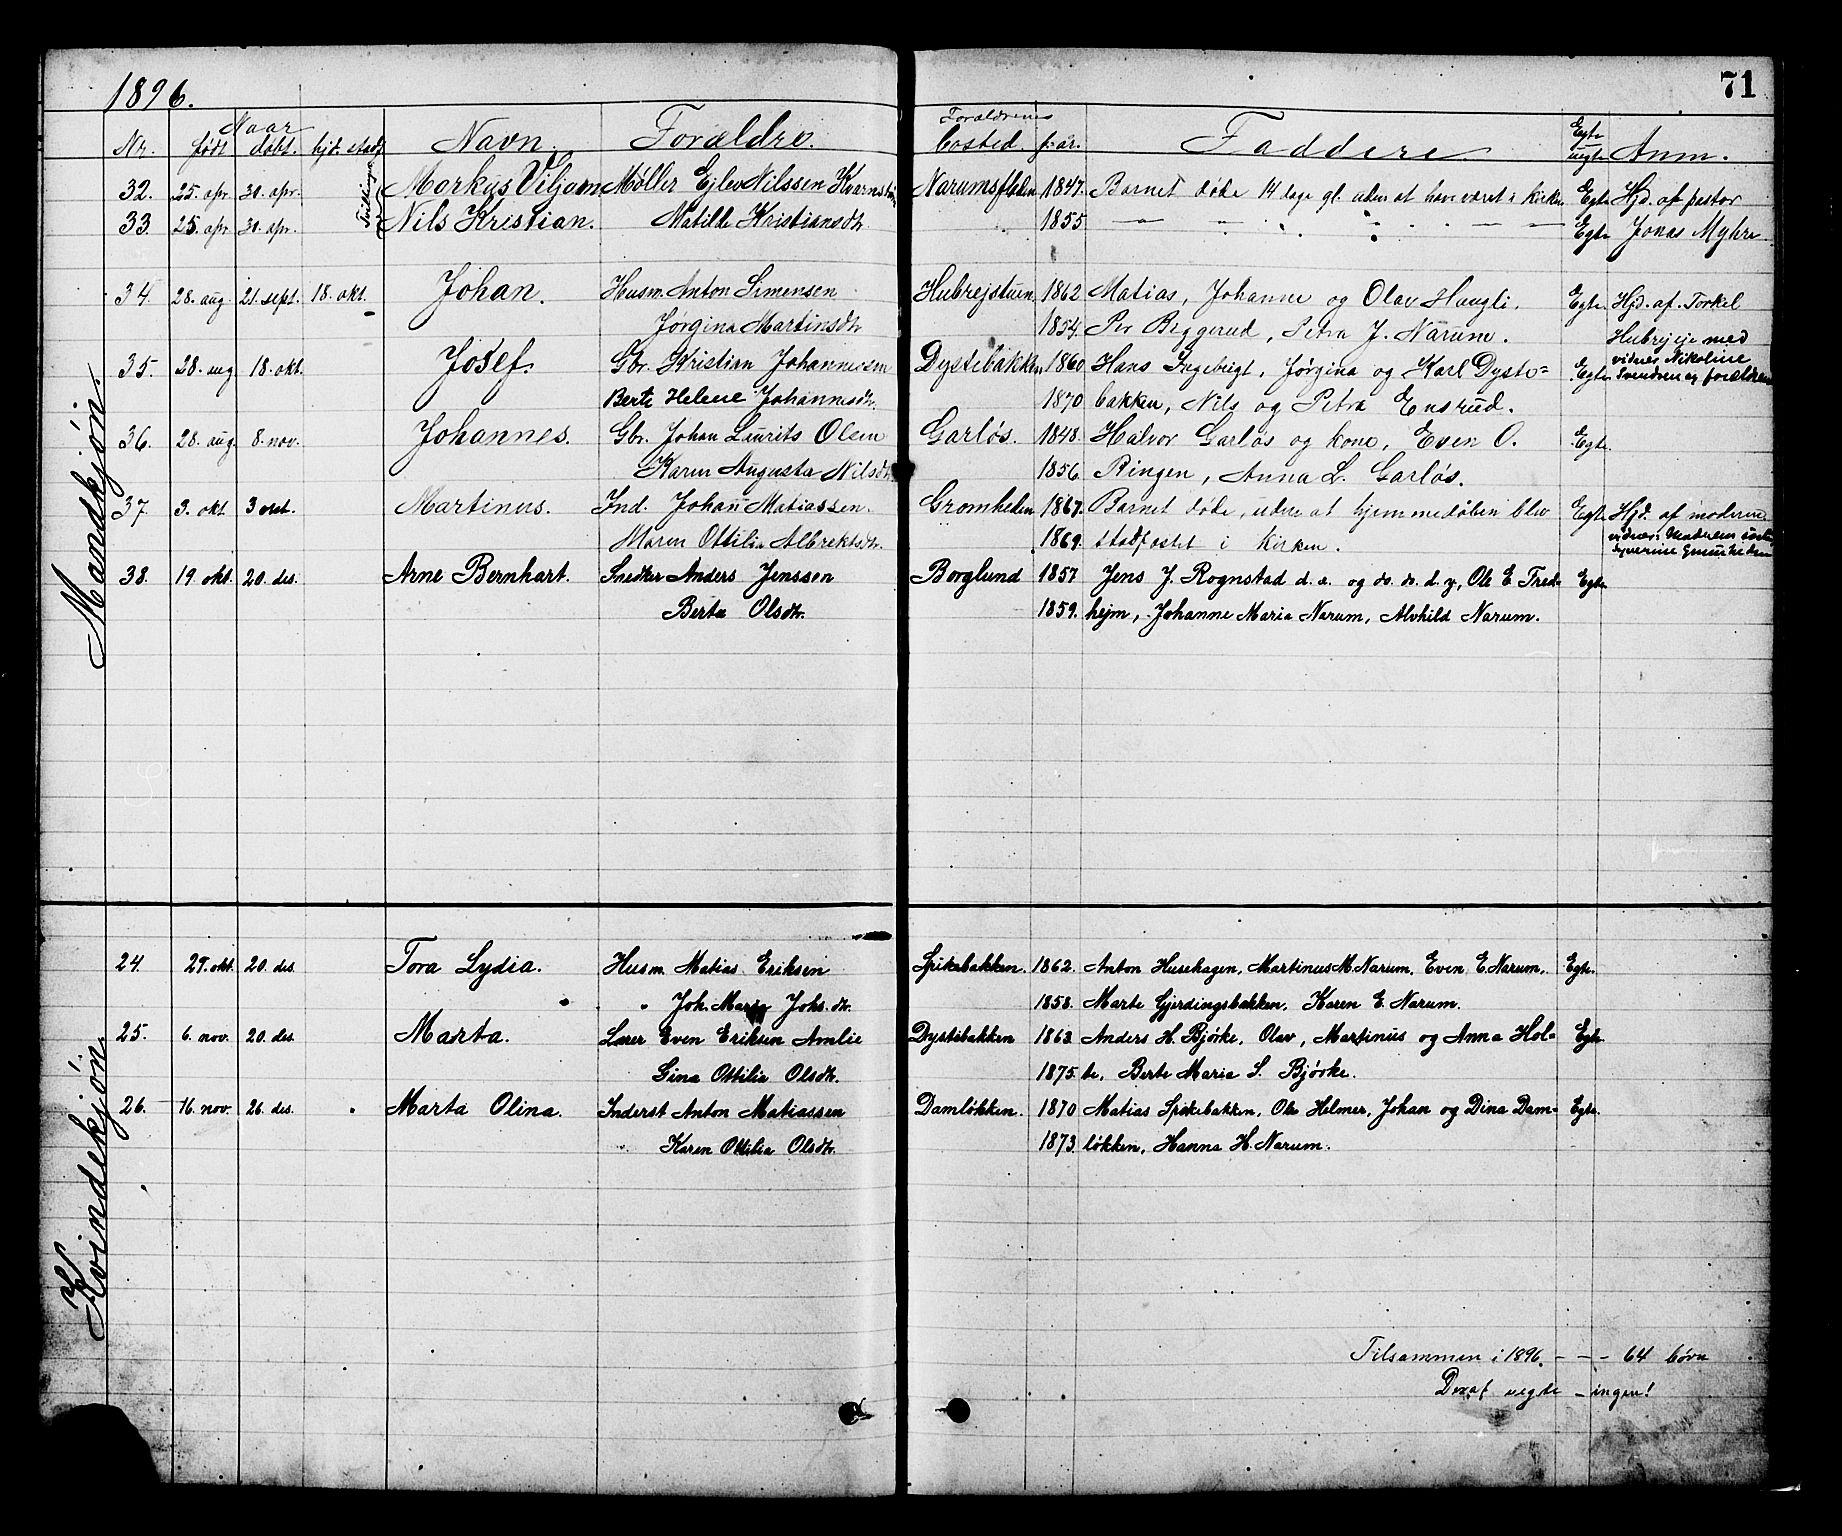 1896.
71
Naar
Nr. født døbt. hjd. stadf. Navn. Forældre. Forældrenes bosted. f. aar. Faddere Egte uegte Anm.
Mandkjøn.
Tvillinger
32. 25. apr. 30. apr. Markus Viljam Møller Ejlev Nilssen Narumsfloden 1847. Barnet døde 14 dage gl. uden at have været i kirken Egte Hjd. af pastor
33. 25. apr. 30. apr. Nils Kristian. Matilde Kristiansdtr. 1855 Egte Jonas Myhre
34. 28. aug. 21. sept. 18. okt. Johan. Husm. Anton Simensen Hubrejstuen 1862 Matias, Johanne og Olav Haugli. Egte Hjd. af Torkel
Jørgina Martinsdtr. 1854. Per Beggerud, Petra J. Narum. Hubreje med
35. 28. aug 18. okt. Josef. Gbr. Kristian Johannessen Dystebakken 1860 Hans Ingebrigt, Jørgina og Karl Dyste- Egte vidner Nikoline Svendsen og forældrene
Berte Helene Johannesdtr. 1870 bakken, Nils og Petra Ensrud.
36. 28. aug. 8. nov. Johannes. Gbr. Johan Laurits Olsen Garløs. 1848. Halvor Garløs og kone, Even O. Egte.
Karen Augusta Nilsdtr. 1856. Ringen, Anna L. Garløs.
37. 3. okt. 3 Martinus. Ind. Johan Matiassen. Gromheden 1867. Barnet døde, uden at hjemmedøben blev Egte Hjd. af moderen
Maren Ottilia Albrektsdtr. 1869. stadfæstet i kirken. vidner: Moderens søster
38. 19. okt. 20. des. Arne Bernhart. Snedker Anders Jenssen Borglund 1857 Jens J. Rognstad d. e. og do. do. d. y., Ole E. Tred- Egte
Berta Olsdtr. 1859. hejm, Johanne Maria Narum, Alvhild Narum.
Kvindekjøn.
24. 29. okt. 20. des. Tora Lydia. Husm. Matias Eriksen Spikebakken. 1862. Anton Husehagen, Martinus M. Narum, Even E. Narum, Egte.
Joh. Marta Johs. dtr. 1858. Marte Gjerdingsbakken, Karen E. Narum.
25. 6. nov. 20. des. Marta. Lærer Even Eriksen Amlie Dystebakken 1863. Anders H. Bjørke, Olav, Martinus og Anna Hol- Egte
Gina Ottilia Olsdtr. 1875. te, Berte Maria S. Bjørke.
26. 16. nov. 26. des. Marta Olina. Inderst Anton Matiassen Damløkken. 1870 Matias Spikebakken, Ole Helmer, Johan og Dina Dam- Egte.
Karen Ottilia Olsdtr. 1873. løkken, Hanna H. Narum.
Tilsammen i 1896. - - - 64 børn
Deraf uegte - ingen!